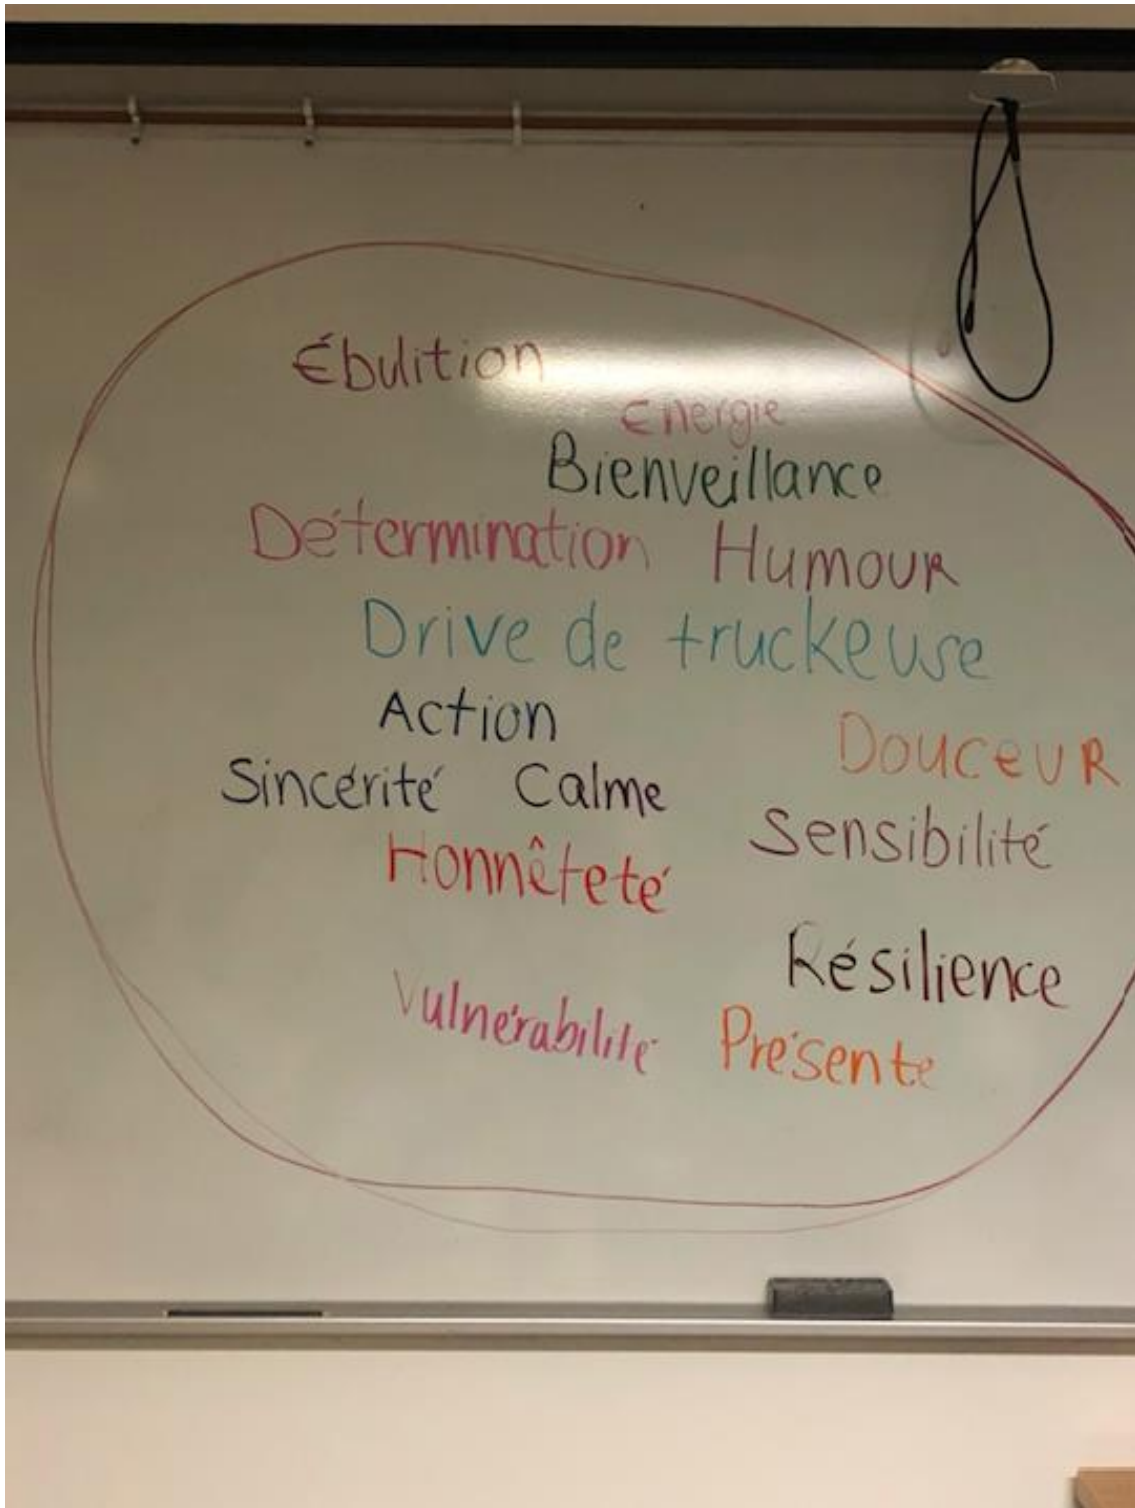 Ébulition
Energie
Bienveillance
Détermination Humour
Drive de truckeuse
Action
Douceur
Sincérité Calme
Sensibilité
Honnêteté
Résilience
Vulnérabilité Présente